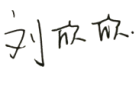 刘欣欣.